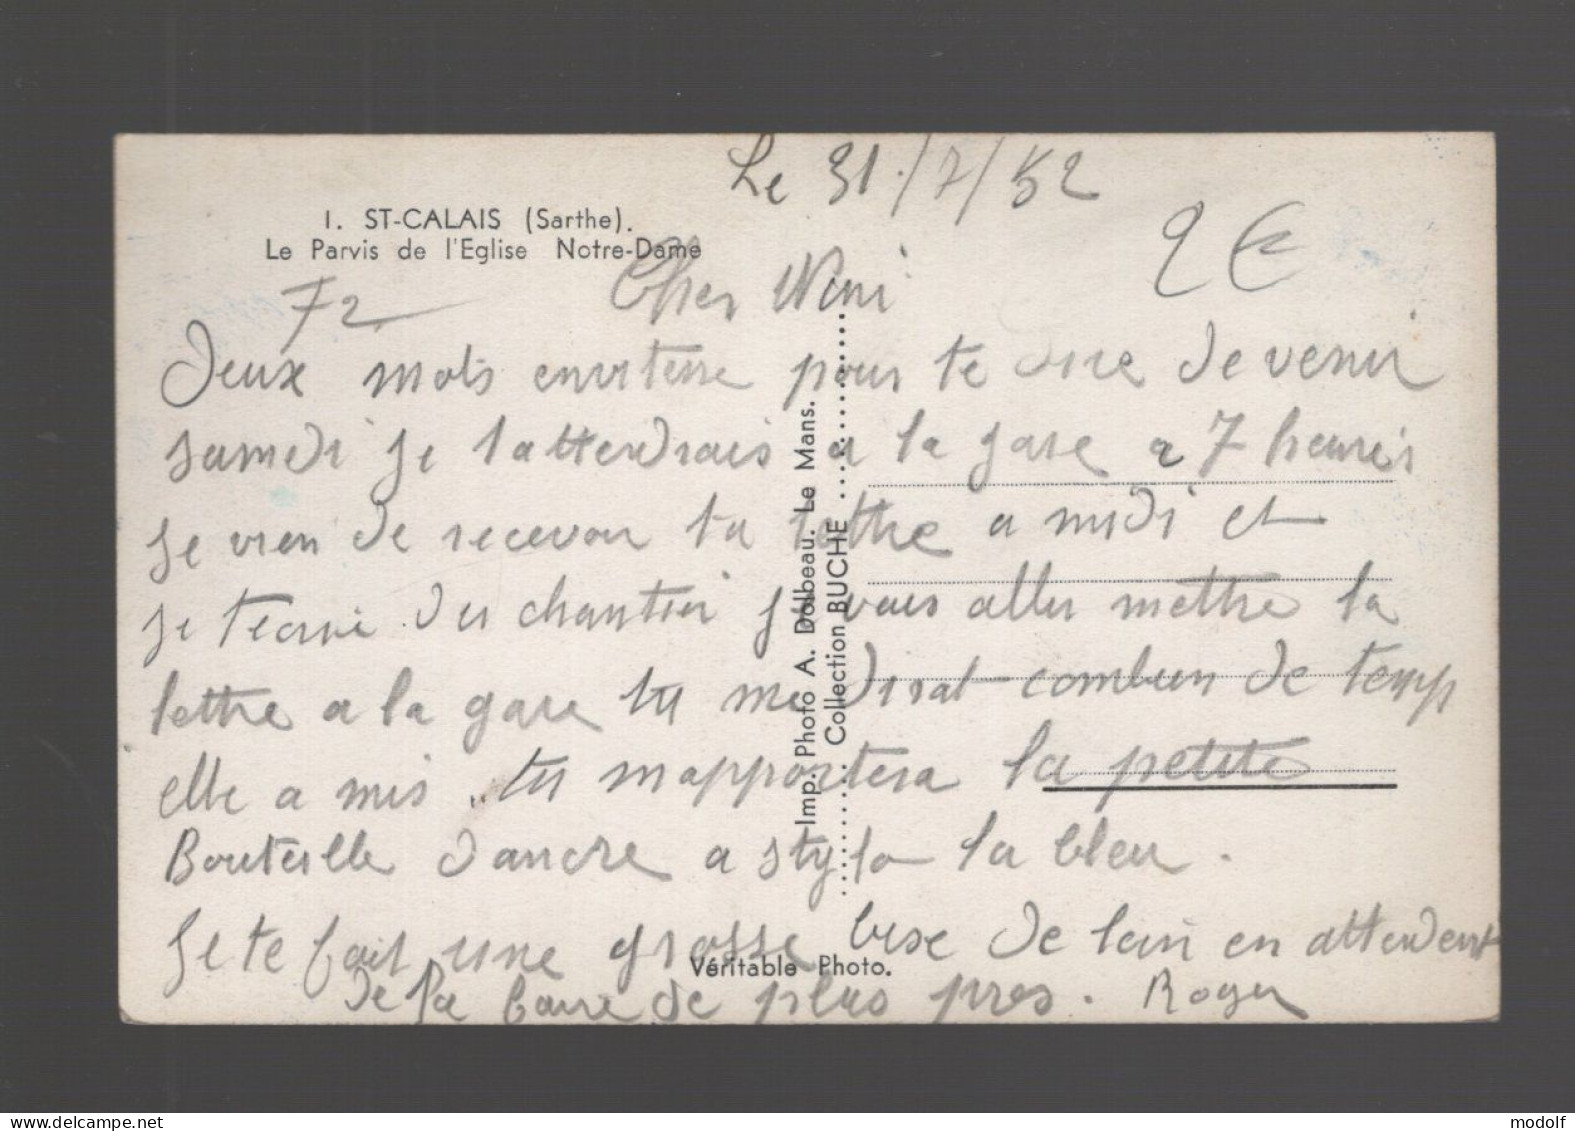 Le 31/7/52
1. ST-CALAIS (Sarthe).
Le Parvis de l'Eglise Notre-Dame
72
2 €
Cher Nini
Deux mots en vitesse pour te dire de venir
samedi je tattendrais a la gare a 7 heures
je vien de recevoir ta lettre a midi et
je tecrie du chantier je vais aller mettre la
lettre a la gare tu me dirat combien de temp
elle a mis .. tu mapportera la petite
Bouteille dancre a stylo la bleu .
Je te fait une grosse bise de loin en attendent
de la faire de plus pres . Roger
Imp. Photo A. Dolbeau. Le Mans.
Collection BUCHE
Véritable Photo.
delcampe.net
modolf